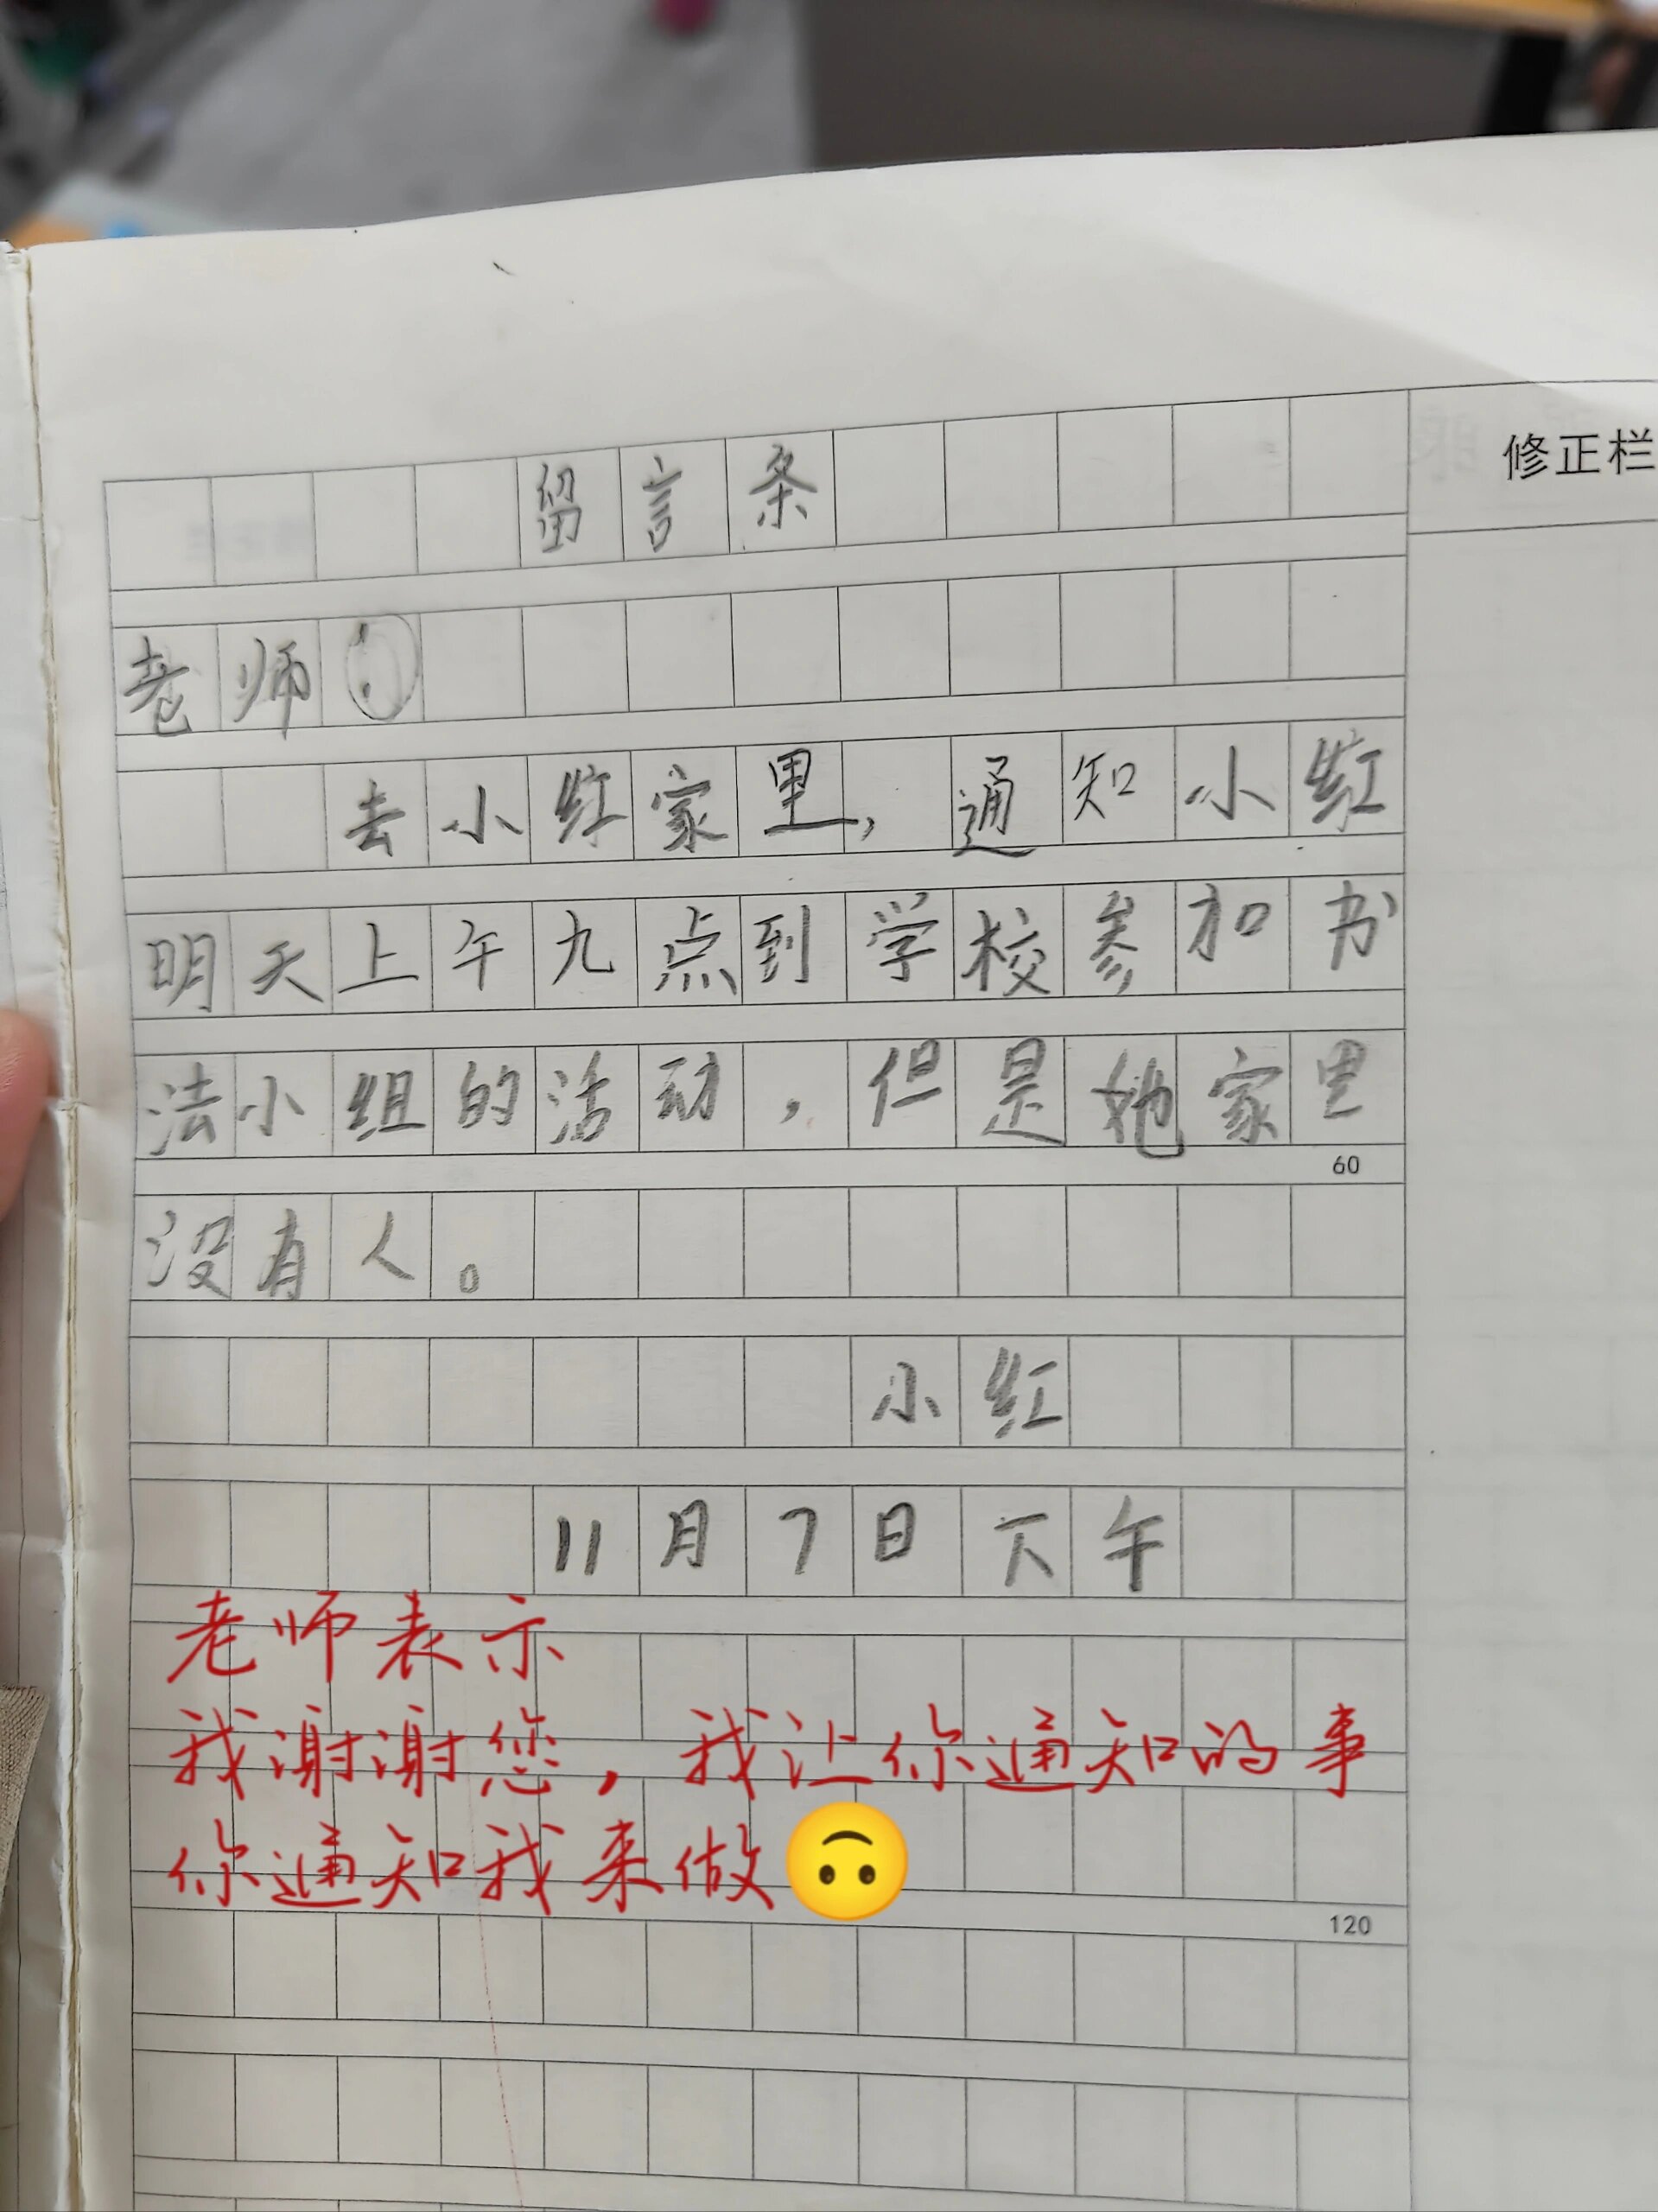 修正栏
留言条
老师:
去小红家里,通知小红
明天上午九点到学校参加书
法小组的活动,但是她家里
60
没有人。
小红
11月7日下午
老师表示
我谢谢您,我让你通知的事
你通知我来做🙃
120